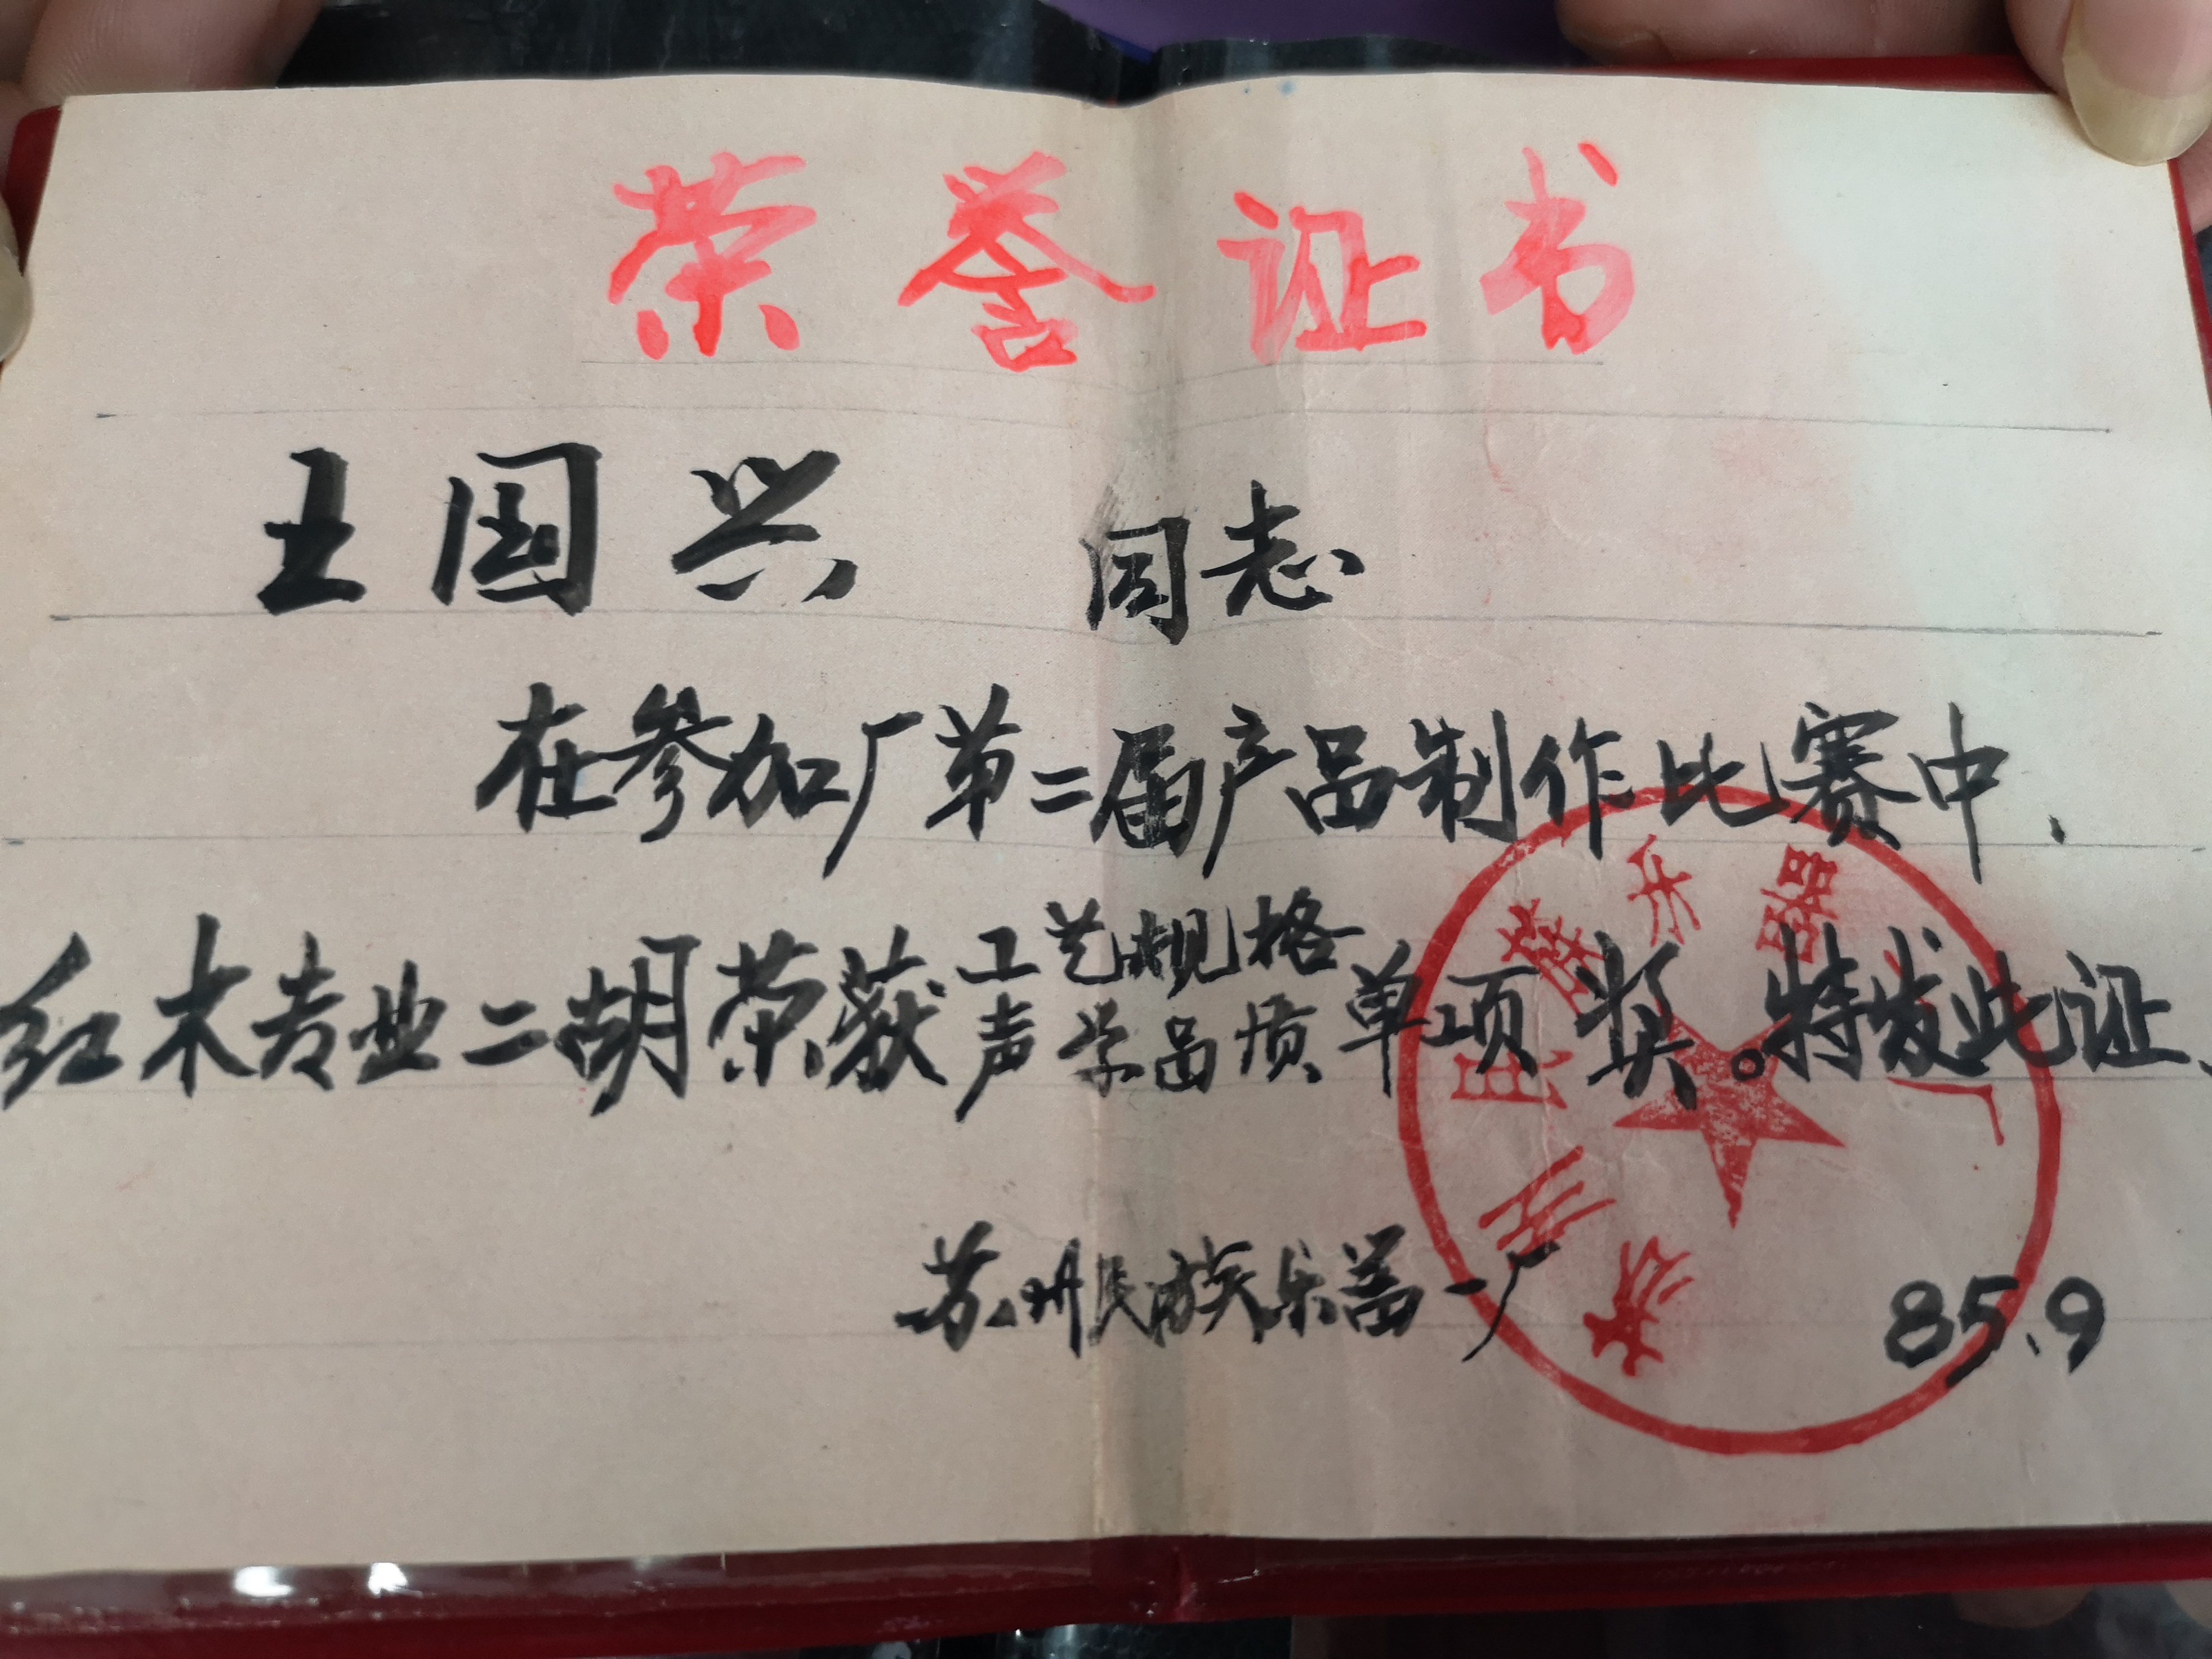 荣誉证书
王国兴 同志
在参加厂第二届产品制作比赛中.
红木专业二胡荣获工艺规格声学品质单项奖。特发此证.
苏州民族乐器一厂
85.9
苏州民族乐器一厂